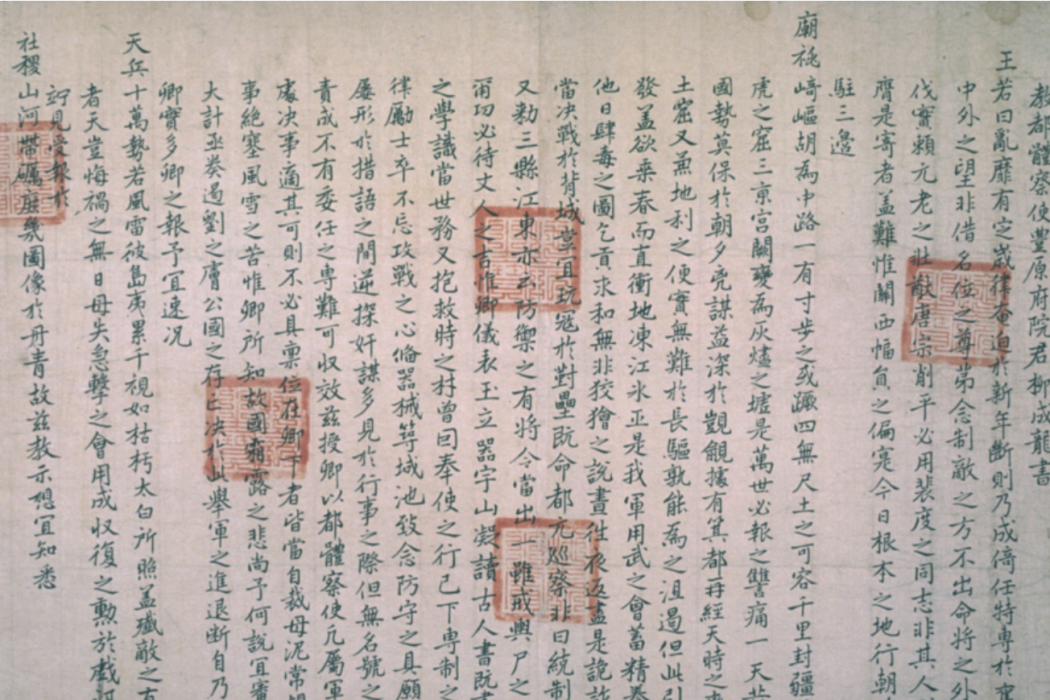 教都體察使豊原府院君柳成龍書
王若曰亂靡有定歲律迫於新年斷則乃成倚任特專於
中外之望非借名位之尊弟念制敵之方不出命將之外
伐實頼元老之壯猷唐宗削平必用裴度之同志非其人
膺是寄者盖難惟關西幅員之偏寔今日根本之地行朝
駐三邊
廟祧崎嶇胡為中路一有寸步之或蹶四無尺土之可容千里封疆
虎之窟三京宮闕變為灰燼之墟是萬世必報之讐痛一天共
國勢莫保於朝夕兇謀益深於覬覦據有箕都再經天時之
土窟又兼地利之便實無難於長驅孰能為之沮遏但此引
發盖欲乗春而直衝地凍江氷正是我軍用武之會蓄精養
他日肆毒之圖乞貢求和無非狡獪之說晝往夜返盡是詭詐
當决戰於背城豈宜玩寇於對壘既命都元巡察非曰統制
又勅三縣江東亦云防禦之有將今當出一雖戒輿尸之
甭功必待丈人之吉惟卿儀表玉立器宇山凝讀古人書既
之學識當世務又抱救時之材曾回奉使之行已下専制之
律勵士卒不忘攻戰之心脩器械等城池致念防守之具願
屡形於措語之間逆探奸謀多見於行事之際但無名號之
責成不有委任之専難可収效茲授卿以都體察使凢屬軍
處决事適其可則不必具禀位在卿下者皆當自裁毋泥常
事絶塞風雪之苦惟卿所知故國霜露之悲尚予何說宜審
大計亟奏遏劉之膚公國之存亡决於此舉軍之進退斷自乃
卿實多卿之報予宜速况
天兵十萬勢若風雷彼島夷累千視如枯朽太白所照盖殲敵之
者天豈悔禍之無日毋失急擊之會用成収復之勲於戲
竚見受報於
社稷山河帶礪庶幾圖像於丹青故茲教示想宜知悉